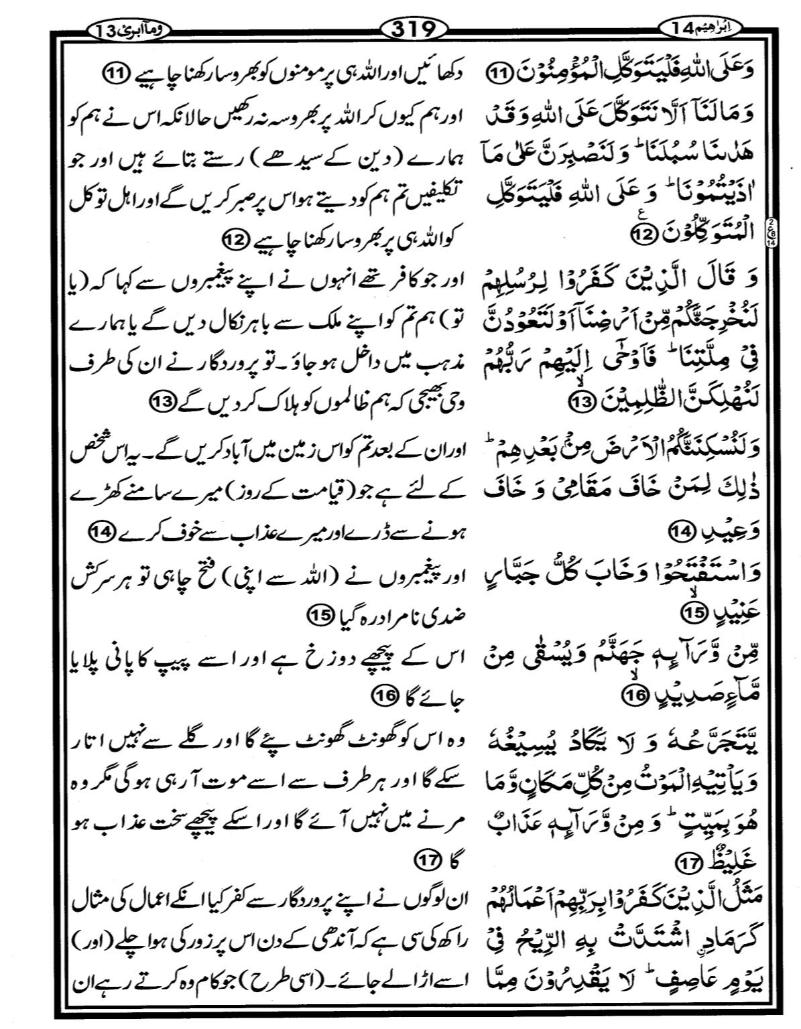 اِبْرٰهِيْم 14
319
وَمَآ اُبَرِّئُ 13
وَعَلَى اللّٰهِ فَلْيَتَوَكَّلِ الْمُؤْمِنُوْنَ ⑪
وَمَا لَنَآ اَلَّا نَتَوَكَّلَ عَلَى اللّٰهِ وَقَدْ
هَدٰىنَا سُبُلَنَا ؕ وَلَنَصْبِرَنَّ عَلٰى مَآ
اٰذَيْتُمُوْنَا ؕ وَعَلَى اللّٰهِ فَلْيَتَوَكَّلِ
الْمُتَوَكِّلُوْنَ ⑫ ع
وَقَالَ الَّذِيْنَ كَفَرُوْا لِرُسُلِهِمْ
لَنُخْرِجَنَّكُمْ مِّنْ اَرْضِنَآ اَوْ لَتَعُوْدُنَّ
فِيْ مِلَّتِنَا ؕ فَاَوْحٰٓى اِلَيْهِمْ رَبُّهُمْ
لَنُهْلِكَنَّ الظّٰلِمِيْنَ ⑬ ۙ
وَلَنُسْكِنَنَّكُمُ الْاَرْضَ مِنْۢ بَعْدِهِمْ ؕ
ذٰلِكَ لِمَنْ خَافَ مَقَامِيْ وَخَافَ
وَعِيْدِ ⑭
وَاسْتَفْتَحُوْا وَخَابَ كُلُّ جَبَّارٍ
عَنِيْدٍ ⑮ ۙ
مِّنْ وَّرَآئِهٖ جَهَنَّمُ وَيُسْقٰى مِنْ
مَّآءٍ صَدِيْدٍ ⑯ ۙ
يَّتَجَرَّعُهٗ وَلَا يَكَادُ يُسِيْغُهٗ
وَيَاْتِيْهِ الْمَوْتُ مِنْ كُلِّ مَكَانٍ وَّمَا
هُوَ بِمَيِّتٍ ؕ وَمِنْ وَّرَآئِهٖ عَذَابٌ
غَلِيْظٌ ⑰
مَثَلُ الَّذِيْنَ كَفَرُوْا بِرَبِّهِمْ اَعْمَالُهُمْ
كَرَمَادِ ِۨاشْتَدَّتْ بِهِ الرِّيْحُ فِيْ
يَوْمٍ عَاصِفٍ ؕ لَا يَقْدِرُوْنَ مِمَّا
دکھائیں اور اللہ ہی پر مومنوں کو بھروسا رکھنا چاہیے ⑪
اور ہم کیوں کر اللہ پر بھروسہ نہ رکھیں حالانکہ اس نے ہم کو
ہمارے (دین کے سیدھے) رستے بتائے ہیں اور جو
تکلیفیں تم ہم کو دیتے ہو اس پر صبر کریں گے اور اہل توکل
کو اللہ ہی پر بھروسا رکھنا چاہیے ⑫
اور جو کافر تھے انہوں نے اپنے پیغمبروں سے کہا کہ (یا
تو) ہم تم کو اپنے ملک سے باہر نکال دیں گے یا ہمارے
مذہب میں داخل ہو جاؤ۔ تو پروردگار نے ان کی طرف
وحی بھیجی کہ ہم ظالموں کو ہلاک کر دیں گے ⑬
اور ان کے بعد تم کو اس زمین میں آباد کریں گے۔ یہ اس شخص
کے لئے ہے جو (قیامت کے روز) میرے سامنے کھڑے
ہونے سے ڈرے اور میرے عذاب سے خوف کرے ⑭
اور پیغمبروں نے (اللہ سے اپنی) فتح چاہی تو ہر سرکش
ضدی نامراد رہ گیا ⑮
اس کے پیچھے دوزخ ہے اور اسے پیپ کا پانی پلایا
جائے گا ⑯
وہ اس کو گھونٹ گھونٹ پئے گا اور گلے سے نہیں اتار
سکے گا اور ہر طرف سے اسے موت آرہی ہوگی مگر وہ
مرنے میں نہیں آئے گا اور اسکے پیچھے سخت عذاب ہو
گا ⑰
ان لوگوں نے اپنے پروردگار سے کفر کیا انکے اعمال کی مثال
راکھ کی سی ہے کہ آندھی کے دن اس پر زور کی ہوا چلے (اور)
اسے اڑا لے جائے۔ (اسی طرح) جو کام وہ کرتے رہے ان